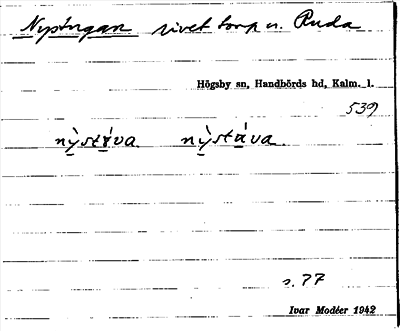 rivet torp u. Ruda
Högsby sn, Handbörds hd, Kalm. l.
539
nỳstáva nỳstáva.
s. 77
Ivar Modéer 1942